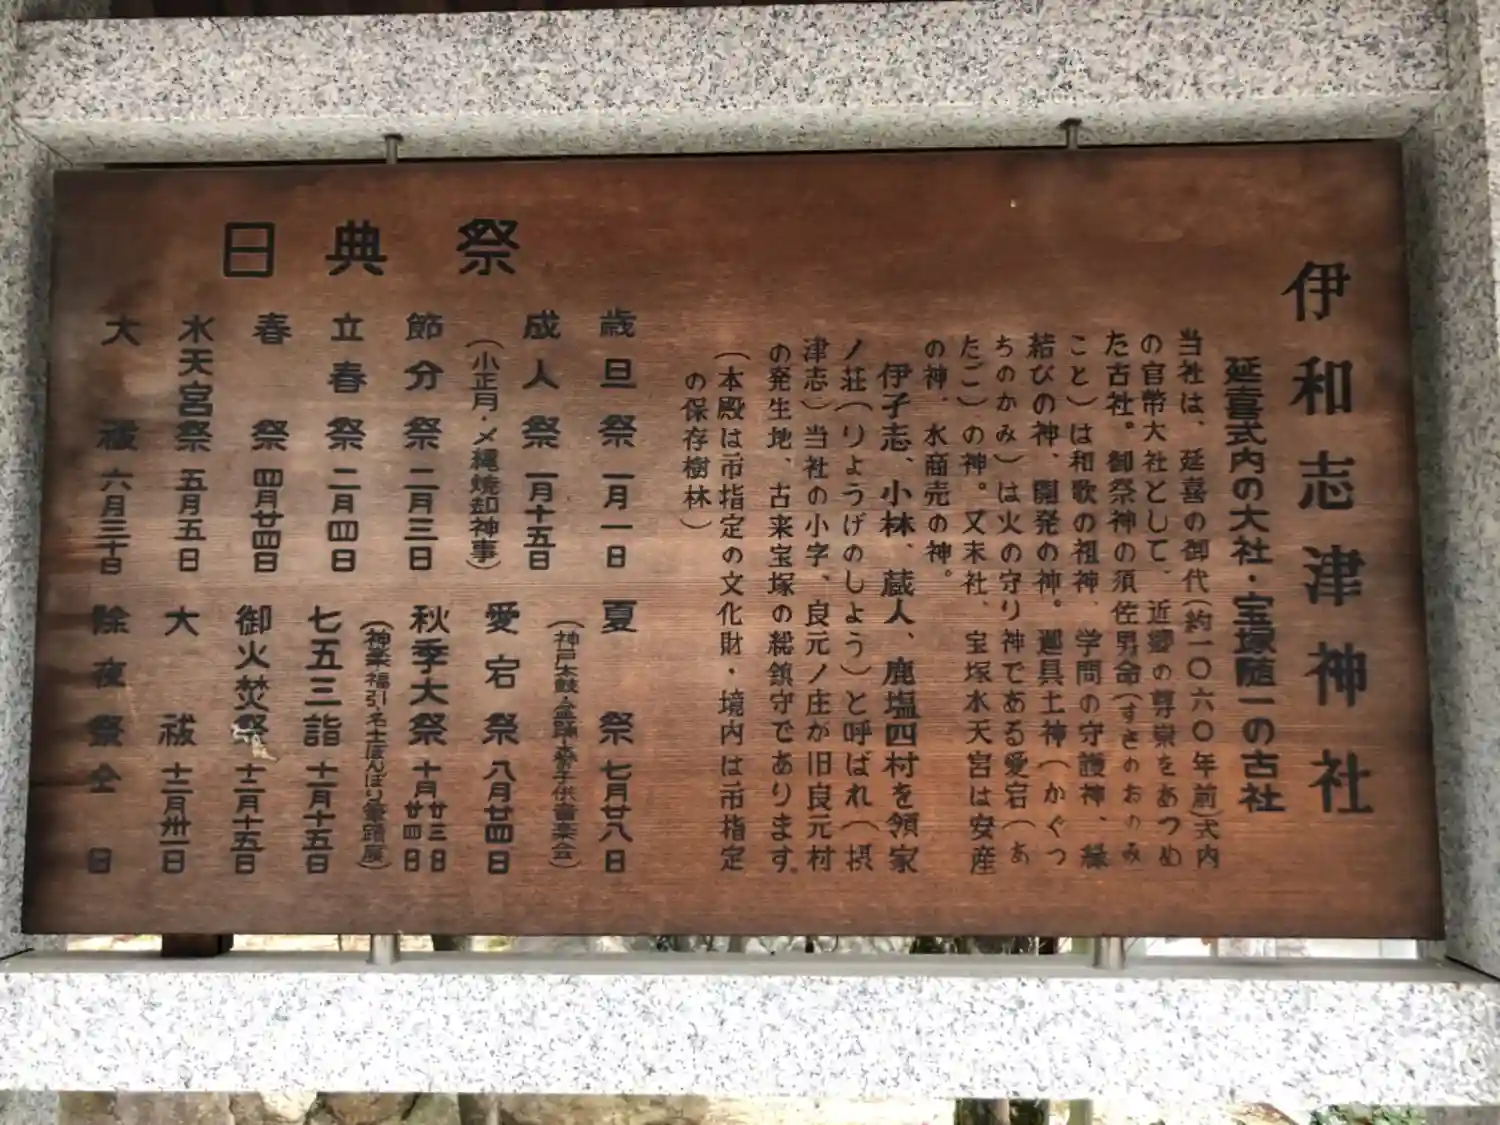 伊和志津神社
延喜式内の大社・宝塚随一の古社
当社は、延喜の御代(約一〇六〇年前)式内
の官幣大社として、近郷の尊崇をあつめ
た古社。御祭神の須佐男命(すさのおのみ
こと)は和歌の祖神、学問の守護神、縁
結びの神、開発の神。迦具土神(かぐつ
ちのかみ)は火の守り神である愛宕(あ
たご)の神。又末社、宝塚水天宮は安産
の神、水商売の神。
伊孑志、小林、蔵人、鹿塩四村を領家
ノ荘(りょうげのしよう)と呼ばれ(摂
津志)当社の小字、良元ノ庄が旧良元村
の発生地、古来宝塚の総鎮守であります。
(本殿は市指定の文化財・境内は市指定
の保存樹林)
祭典日
歳旦祭 一月一日
成人祭 一月十五日
(小正月・〆縄焼却神事)
節分祭 二月三日
立春祭 二月四日
春祭 四月廿四日
水天宮祭 五月五日
大祓 六月三十日
夏祭 七月廿八日
(神戸太鼓・金踊・森子供音楽会)
愛宕祭 八月廿四日
秋季大祭 十月廿三日廿四日
(神楽・福引・名士ぼんぼり筆蹟展)
七五三詣 十一月十五日
御火焚祭 十二月十五日
大祓 十二月卅一日
除夜祭 仝日